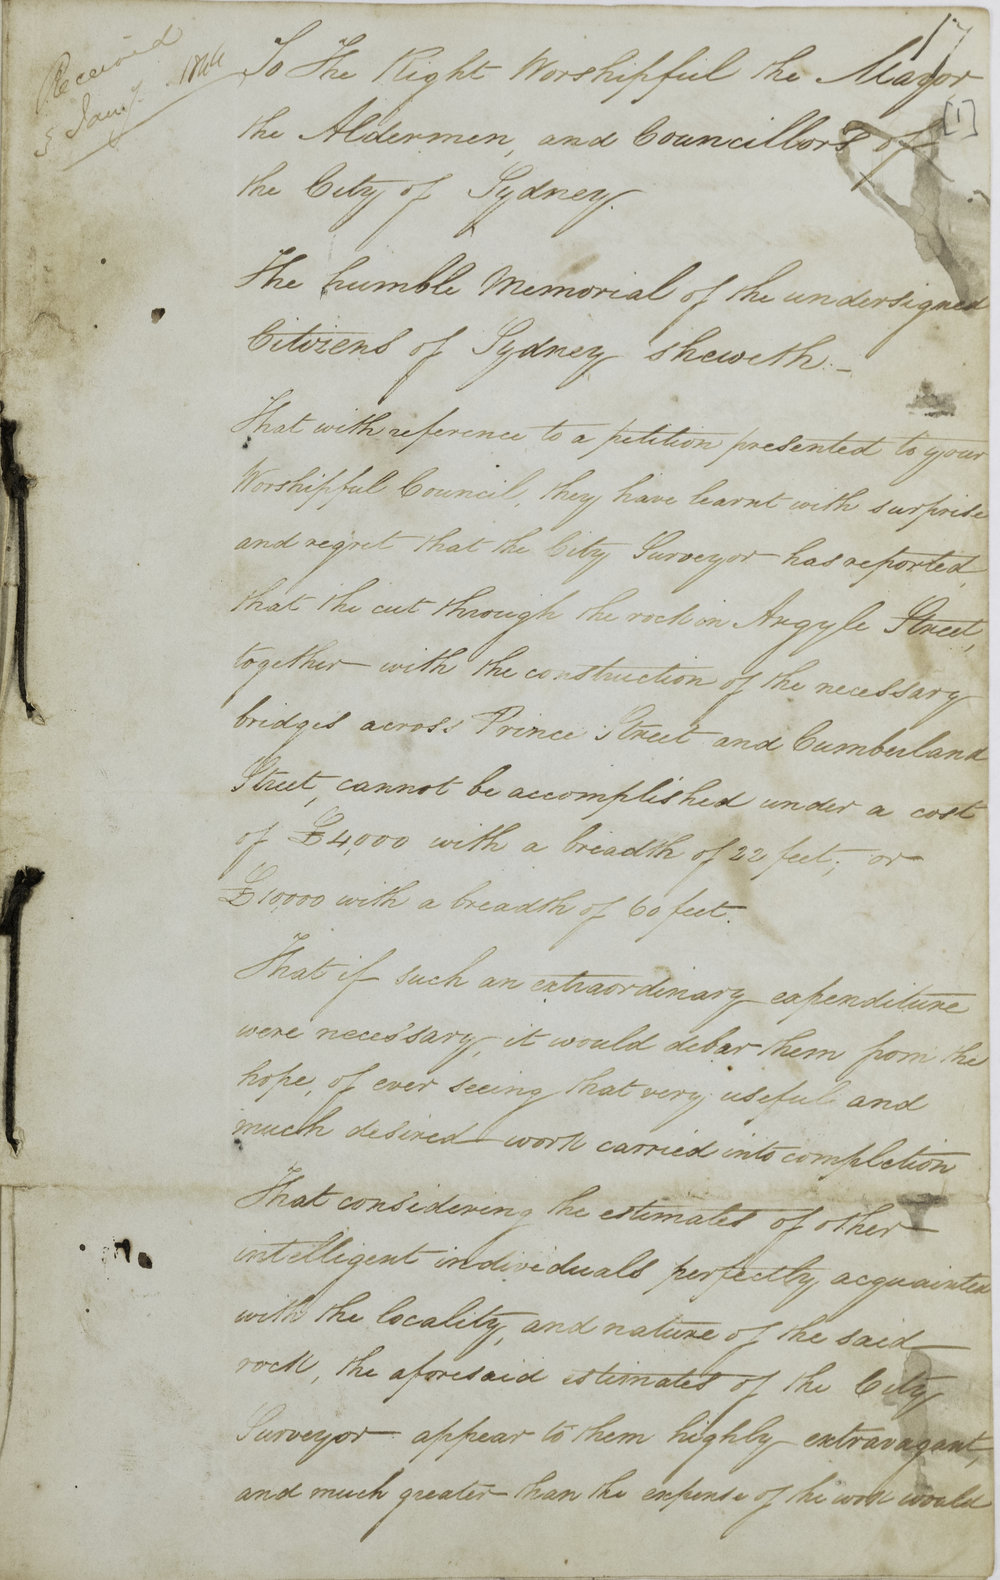 Received
5 Jany. 1844
17
[1]
To The Right Worshipful the Mayor
the Aldermen, and Councillors of
the City of Sydney.
The humble Memorial of the undersigned
Citizens of Sydney sheweth:-
That with reference to a petition presented to your
Worshipful Council, they have learnt with surprise
and regret that the City Surveyor has reported,
that the cut through the rock in Argyle Street,
together with the construction of the necessary
bridges across Prince Street and Cumberland
Street, cannot be accomplished under a cost
of £4,000 with a breadth of 22 feet; or
£10,000 with a breadth of 60 feet.
That if such an extraordinary expenditure
were necessary, it would debar them from the
hope, of ever seeing that very useful and
much desired work carried into completion
That considering the estimates of other
intelligent individuals perfectly acquainted
with the locality, and nature of the said
rock, the aforesaid estimates of the City
Surveyor appear to them highly extravagant,
and much greater than the expense of the work would